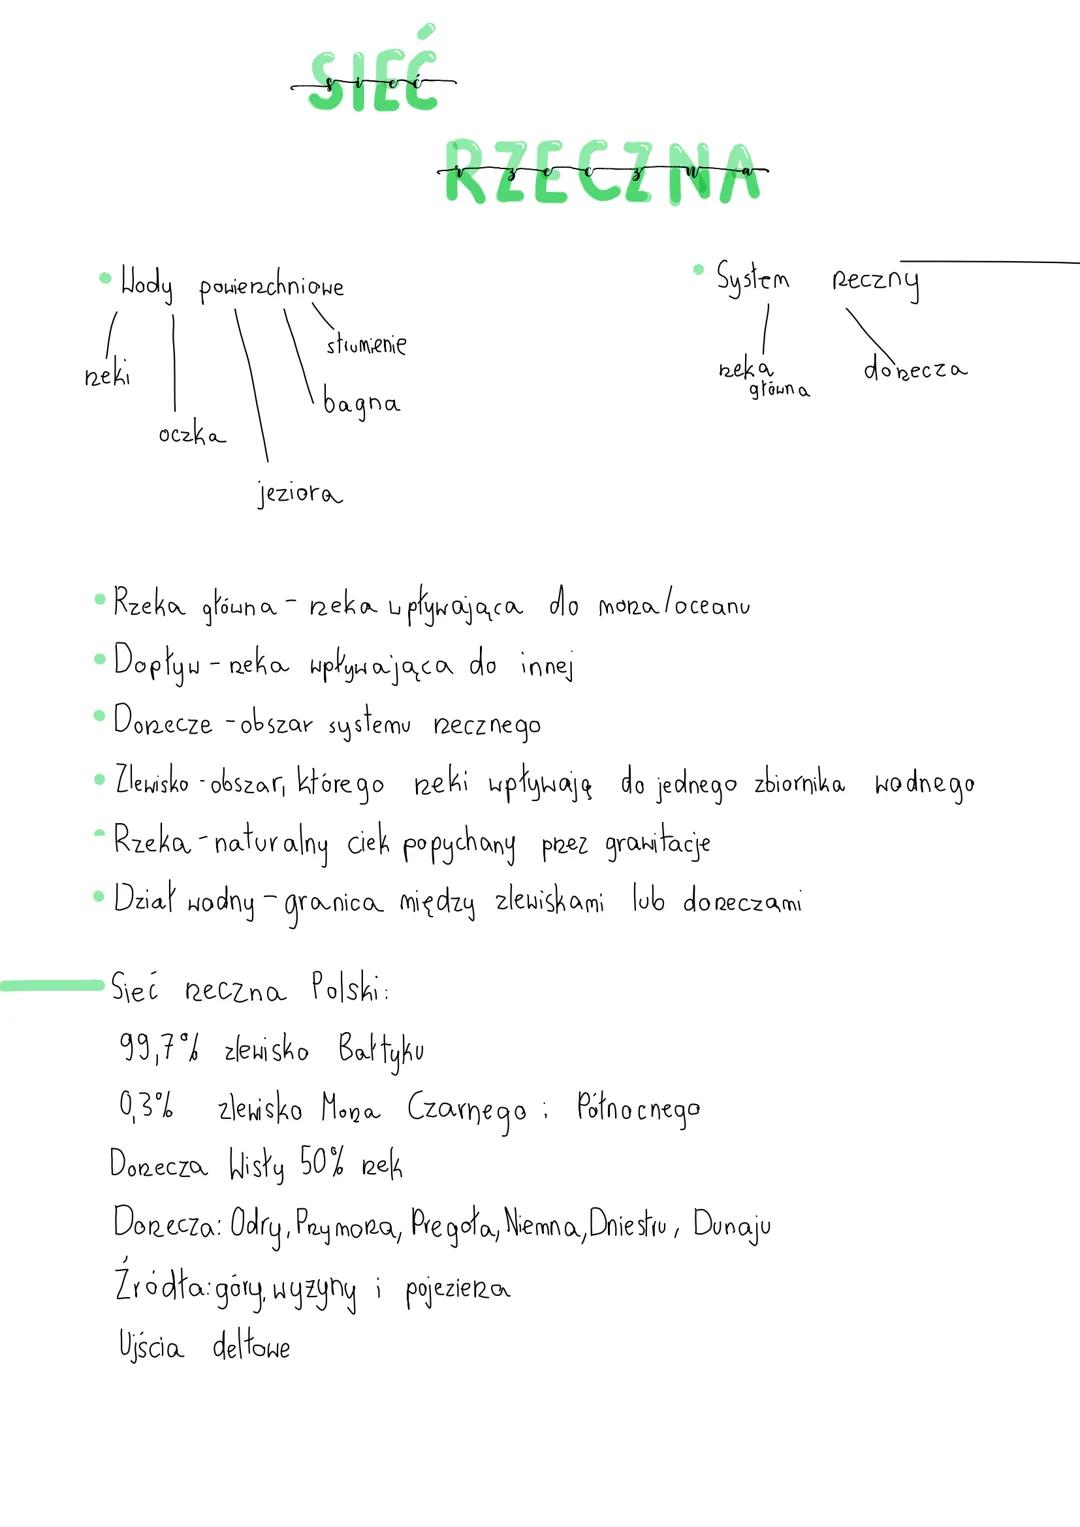 SIEĆ
sieć
RZECZNA
rzeczna
• Wody powierzchniowe
rzeki
oczka
jeziora
bagna
strumienie
• System rzeczny
rzeka
główna
dorzecza
• Rzeka główna - rzeka wpływająca do morza/oceanu
• Dopływ - rzeka wpływająca do innej
• Dorzecze - obszar systemu rzecznego
• Zlewisko - obszar, którego rzeki wpływają do jednego zbiornika wodnego
• Rzeka - naturalny ciek popychany przez grawitacje
• Dział wodny - granica między zlewiskami lub dorzeczami
Sieć rzeczna Polski:
99,7% zlewisko Bałtyku
0,3% zlewisko Morza Czarnego i Północnego
Dorzecza Wisły 50% rzek
Dorzecza: Odry, Przymorza, Pregoła, Niemna, Dniestru, Dunaju
Źródła: góry, wyżyny i pojezierza
Ujścia deltowe